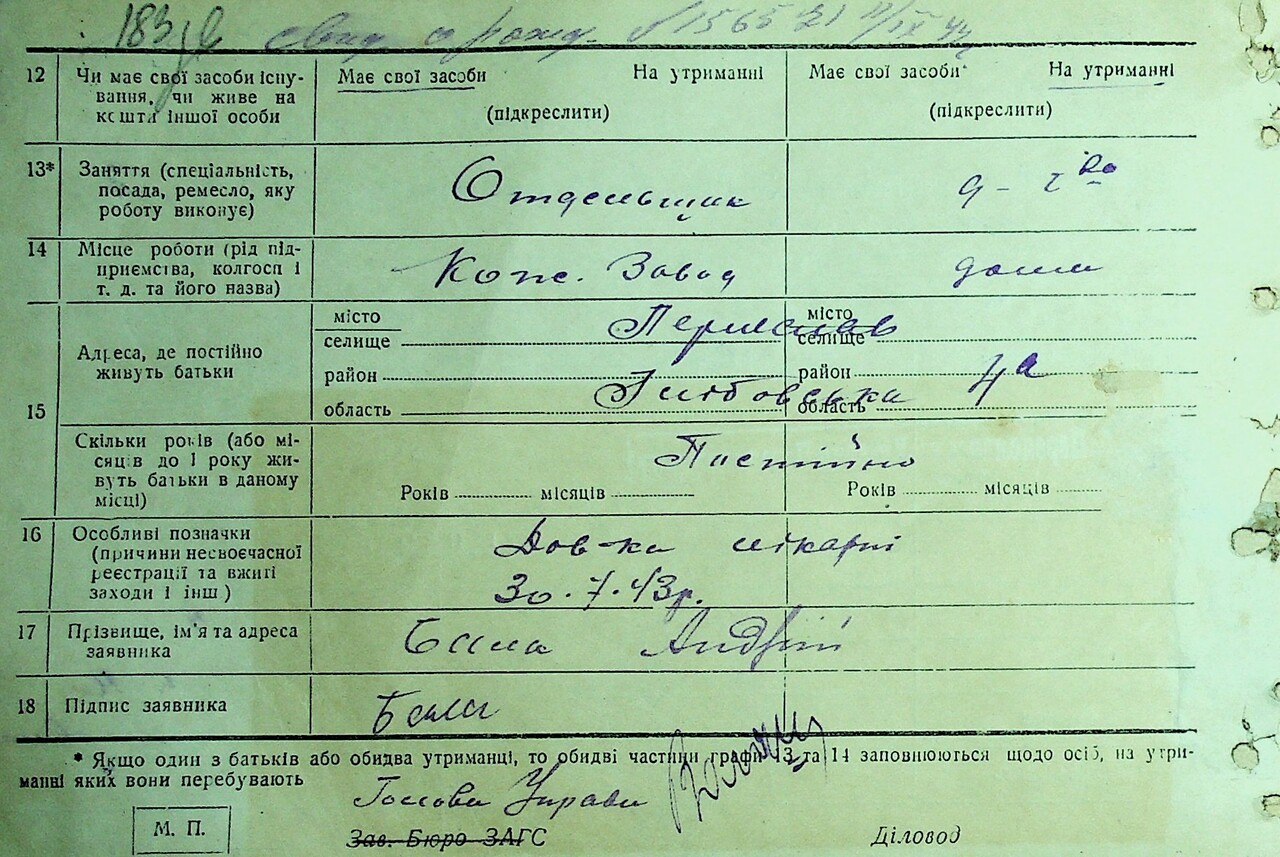 183 св о рожд. № 156521 11/IX 44
12 Чи має свої засоби існу- Має свої засоби На утриманні Має свої засоби На утриманні
вання, чи живе на
кошти іншої особи (підкреслити) (підкреслити)
13* Заняття (спеціальність,
посада, ремесло, яку Отдельщик д-г во
роботу виконує)
14 Місце роботи (рід під-
приємства, колгосп і Кож. Завод дома
т. д. та його назва)
місто Переяслав місто
селище селище
Адреса, де постійно
живуть батьки район район 4а
15 область область
Скільки років (або мі- Постійно
сяців до 1 року жи-
вуть батьки в даному
місці) Років місяців Років місяців
16 Особливі позначки Дов-ка лікарні
(причини несвоєчасної
реєстрації та вжиті 30.7.43р.
заходи і інш)
17 Прізвище, ім'я та адреса Бала Андрій
заявника
18 Підпис заявника Бала
* Якщо один з батьків або обидва утриманці, то обидві частини графи 13 та 14 заповнюються щодо осіб, на утри-
манні яких вони перебувають
Голова Управи
М. П. Зав. Бюро ЗАГС Діловод